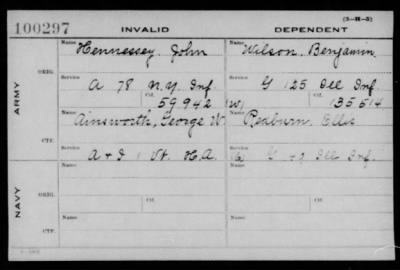 (3-H-5)
100297 INVALID DEPENDENT
Name Hennessey, John Name Wilson, Benjamin
ARMY
ORIG.
Service A 78 N.Y. Inf. Service G 125 Ill Inf.
Ctf. 59942 (W) Ctf. 135514
Name Ainsworth, George W. Name Ellis
CTF.
Service A + I 1 Vt. H.A. Service G 49 Ill Inf.
NAVY
ORIG.
Name Ctf. Name Ctf.
CTF.
Name Name